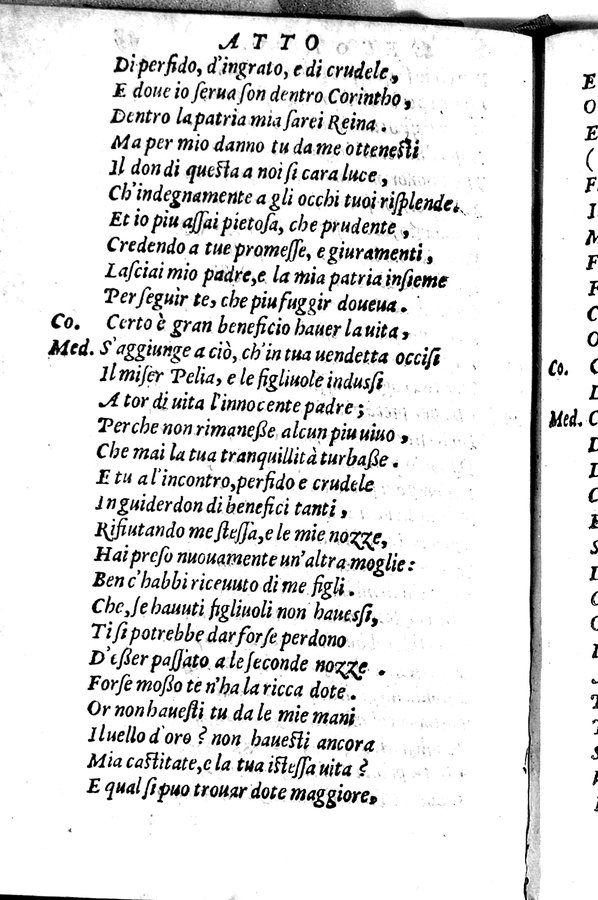 ATTO
Di perfido, d'ingrato, e di crudele,
E doue io serua son dentro Corintho,
Dentro la patria mia sarei Reina.
Ma per mio danno tu da me ottenesti
Il don di questa a noi si cara luce,
Ch'indegnamente a gli occhi tuoi risplende.
Et io piu assai pietosa, che prudente,
Credendo a tue promesse, e giuramenti,
Lasciai mio padre, e la mia patria insieme
Per seguir te, che piu fuggir doueua.
Co. Certo è gran beneficio hauer la uita,
Med. S'aggiunge a ciò, ch'in tua uendetta occisi
Il miser Pelia, e le figliuole indussi
A tor di uita l'innocente padre;
Perche non rimanesse alcun piu uiuo,
Che mai la tua tranquillità turbasse.
E tu a l'incontro, perfido e crudele
In guiderdon di benefici tanti,
Rifiutando me stessa, e le mie nozze,
Hai preso nuouamente un'altra moglie:
Ben c'habbi riceuuto di me figli.
Che, se hauuti figliuoli non hauessi,
Ti si potrebbe dar forse perdono
D'esser passato a le seconde nozze.
Forse mosso te n'ha la ricca dote.
Or non hauesti tu da le mie mani
Il uello d'oro? non hauesti ancora
Mia castitate, e la tua istessa uita?
E qual si puo trouar dote maggiore,
Co.
Med.